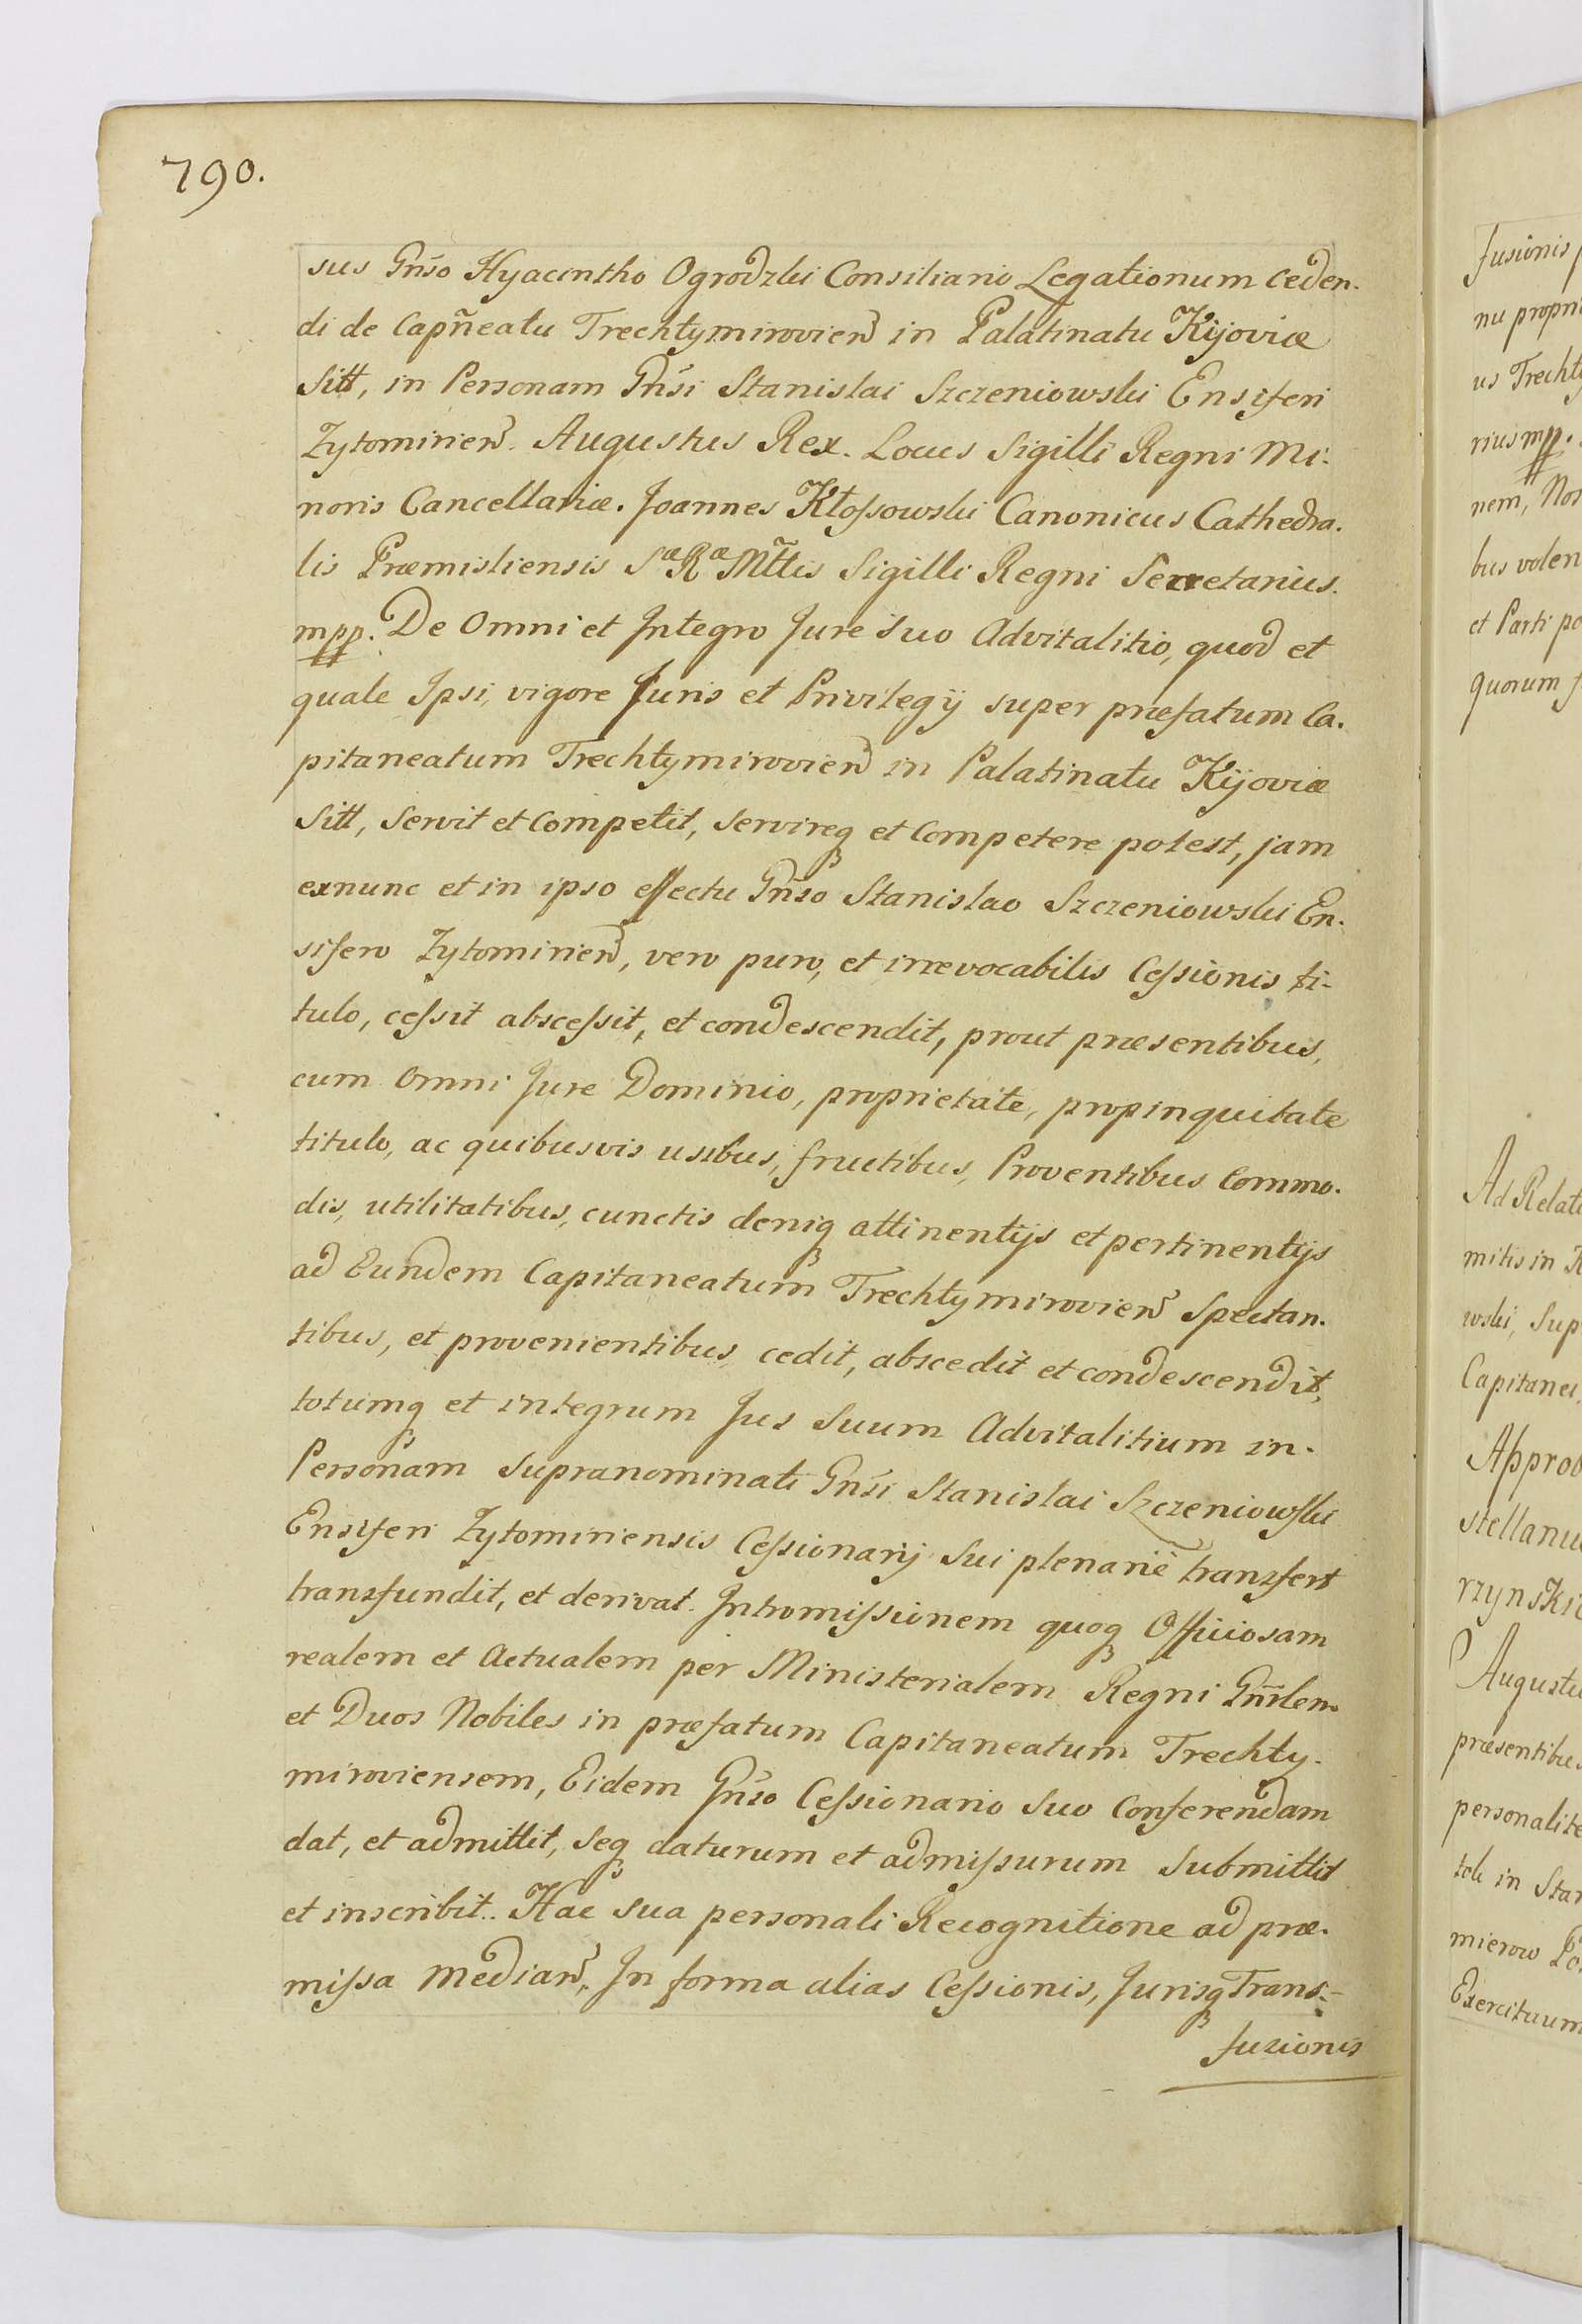 790.
sus Gnso Hyacintho Ogrodzki Consiliario Legationum ceden-
di de Capñeatu Trechtymirovien in Palatinatu Kijoviæ
Sitt, in Personam Gnsi Stanislai Szczeniowski Ensiferi
Zytomirien. Augustus Rex. Locus Sigilli Regni Mi-
noris Cancellariæ. Joannes Kłossowski Canonicus Cathedra-
lis Præmisliensis Sæ Ræ Mttis Sigilli Regni Secretarius.
mpp. De Omni et Integro Jure suo Advitalitio, quod et
quale Ipsi, vigore Juris et Privilegij super præfatum Ca-
pitaneatum Trechtymirovien in Palatinatu Kijoviæ
Sitt, servit et Competit, servireq et Competere potest, jam
exnunc et in ipso effectu Gnso Stanislao Szczeniowski En-
sifero Zytomirien, vero puro, et irrevocabilis Cessionis ti-
tulo, cessit abscessit, et condescendit, prout præsentibus,
cum Omni Jure Dominio, proprietate, propinquitate
titulo, ac quibusvis usibus, fructibus, Proventibus Commo-
dis, utilitatibus, cunctis deniq attinentijs et pertinentijs
ad Eundem Capitaneatum Trechtymirovien Spectan-
tibus, et provenientibus cedit, abscedit et condescendit,
totumq et integrum Jus Suum Advitalitium in-
Personam Supranominati Gnsi Stanislai Szczeniowski
Ensiferi Zytomiriensis Cessionarij Sui plenariè transfert
transfundit, et derivat. Intromissionem quoq Officiosam
realem et Actualem per Ministerialem Regni Gnrlem
et Duos Nobiles in præfatum Capitaneatum Trechty-
miroviensem, Eidem Gnso Cessionario Suo Conferendam
dat, et admittit, Seq daturum et admissurum Submittit
et inscribit. Hac sua personali Recognitione ad præ-
missa median, In forma alias Cessionis, Jurisq Trans-
fusionis
fusionis
nu propri
us Trechty
rius mpp.
nem, Non
bus volen
et Parti po
quorum f
Ad Relati
mitis in K
wski, Sup
Capitanei
Approb
stellanu
rzynski
Augustu
præsentibus
personalite
tok in Star
mierow Po
Exercituum